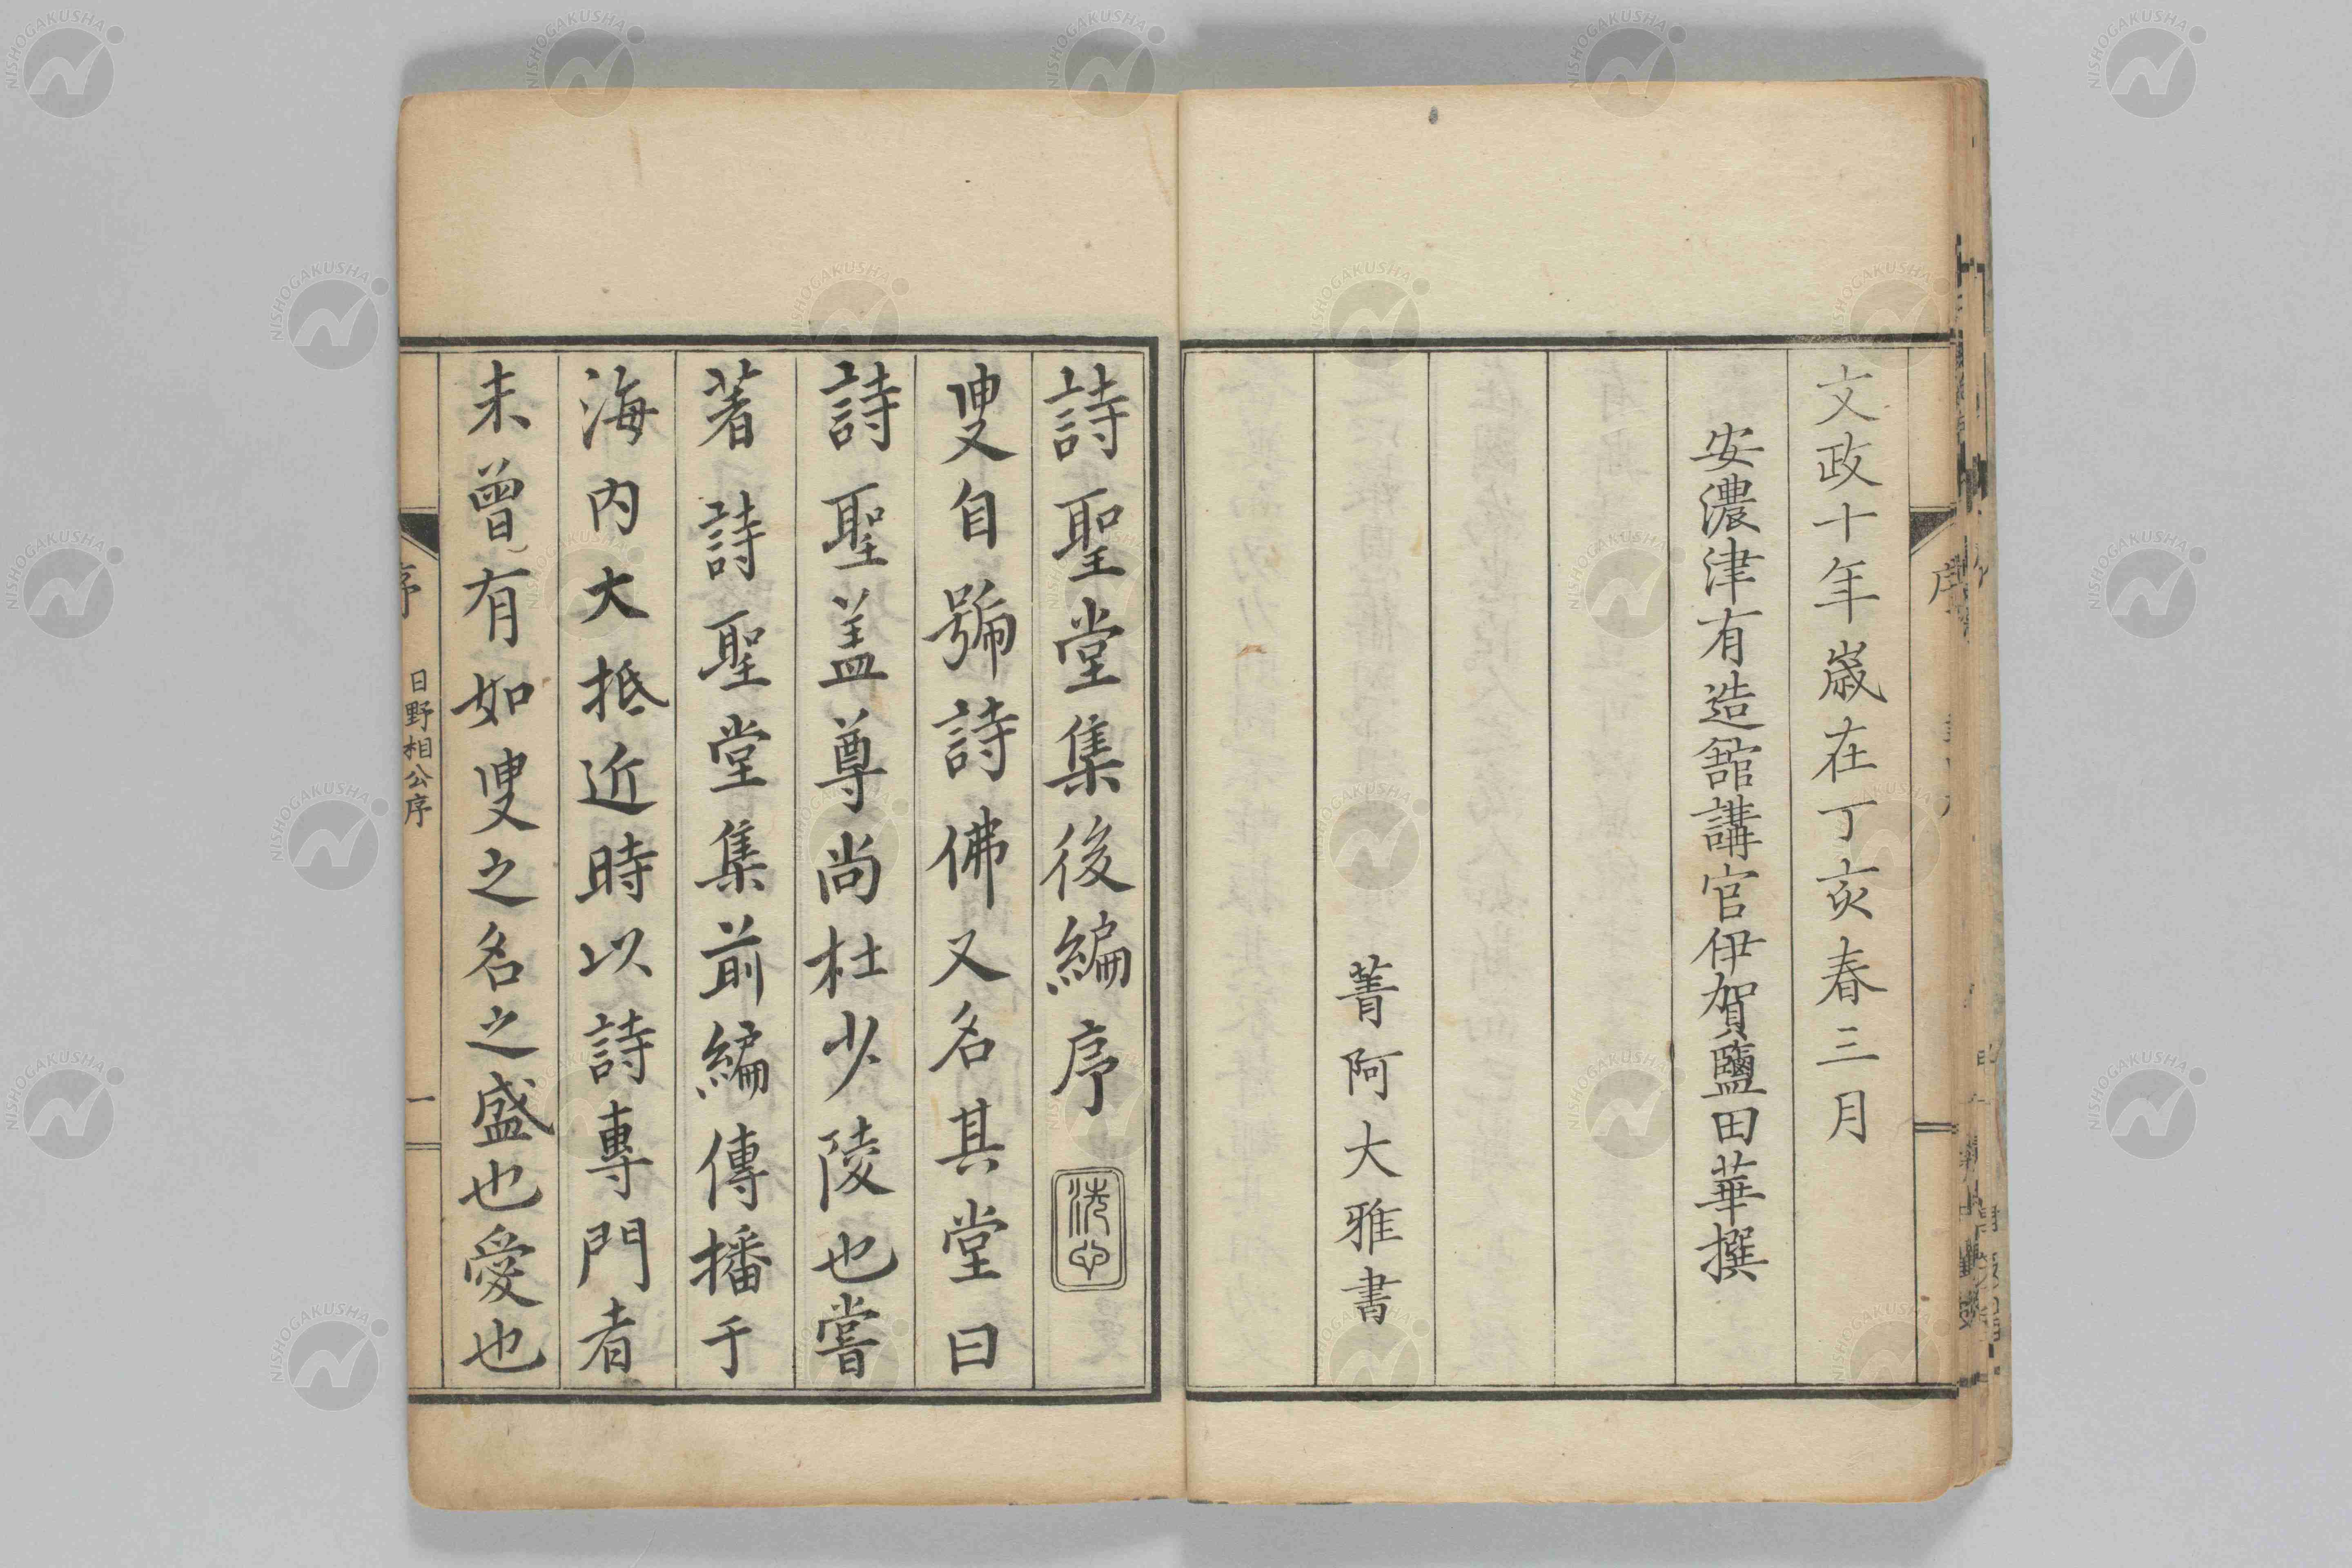 文政十年歳在丁亥春三月
安濃津有造舘講官伊賀鹽田華撰
菁阿大雅書
詩聖堂集後編序
叟自號詩佛又名其堂曰
詩聖盖尊尚杜少陵也嘗
著詩聖堂集前編傳播于
海内大抵近時以詩專門者
未曾有如叟之名之盛也愛也
序 日野相公序 一
NISHOGAKUSHA